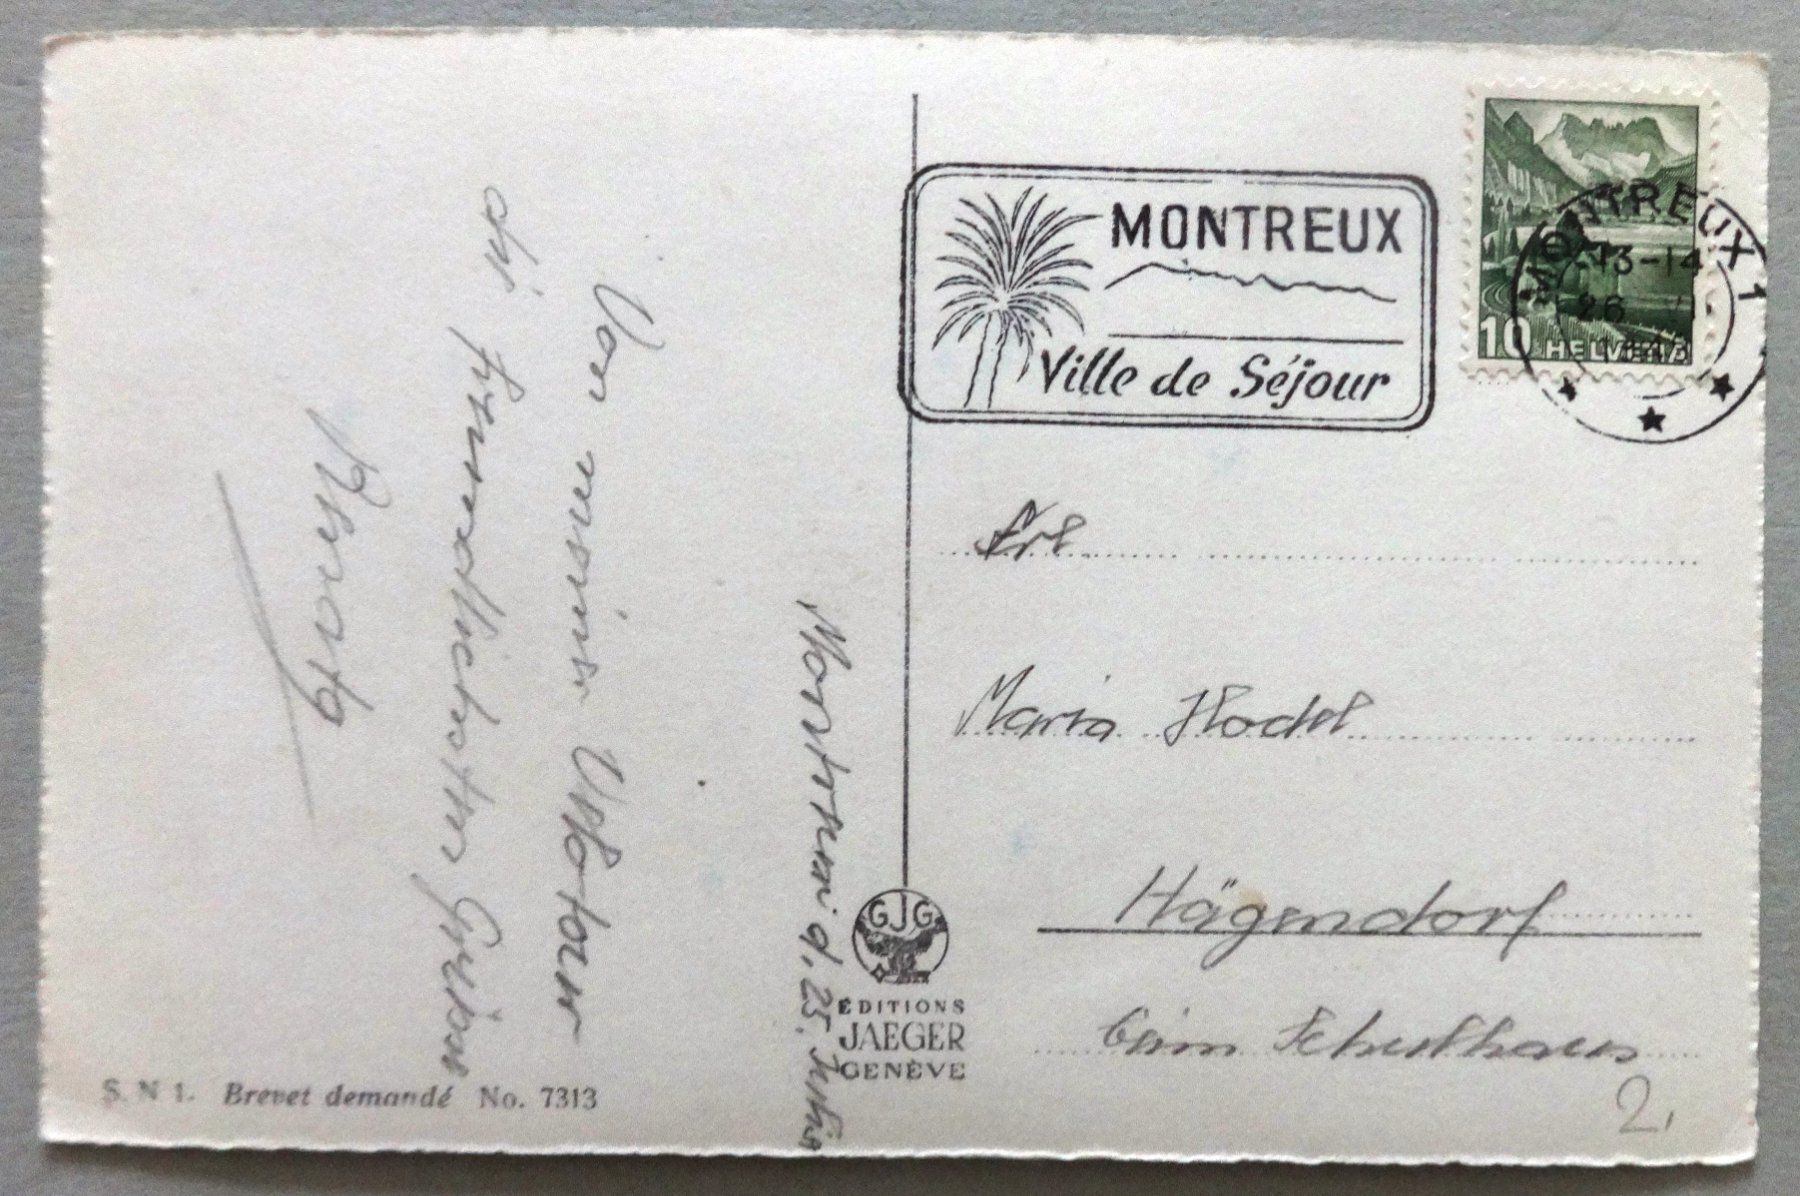 Montreux d, 25. Juli
Von meinen
die freundlichsten Grüsse
MONTREUX
Ville de Séjour
MONTREUX 1
-13-14
26
10 HELVETIA
Frl
Maria Hodel
Hägendorf
beim Schulhaus
2.
GJG
ÉDITIONS
JAEGER
GENÈVE
S. N 1. Brevet demandé No. 7313